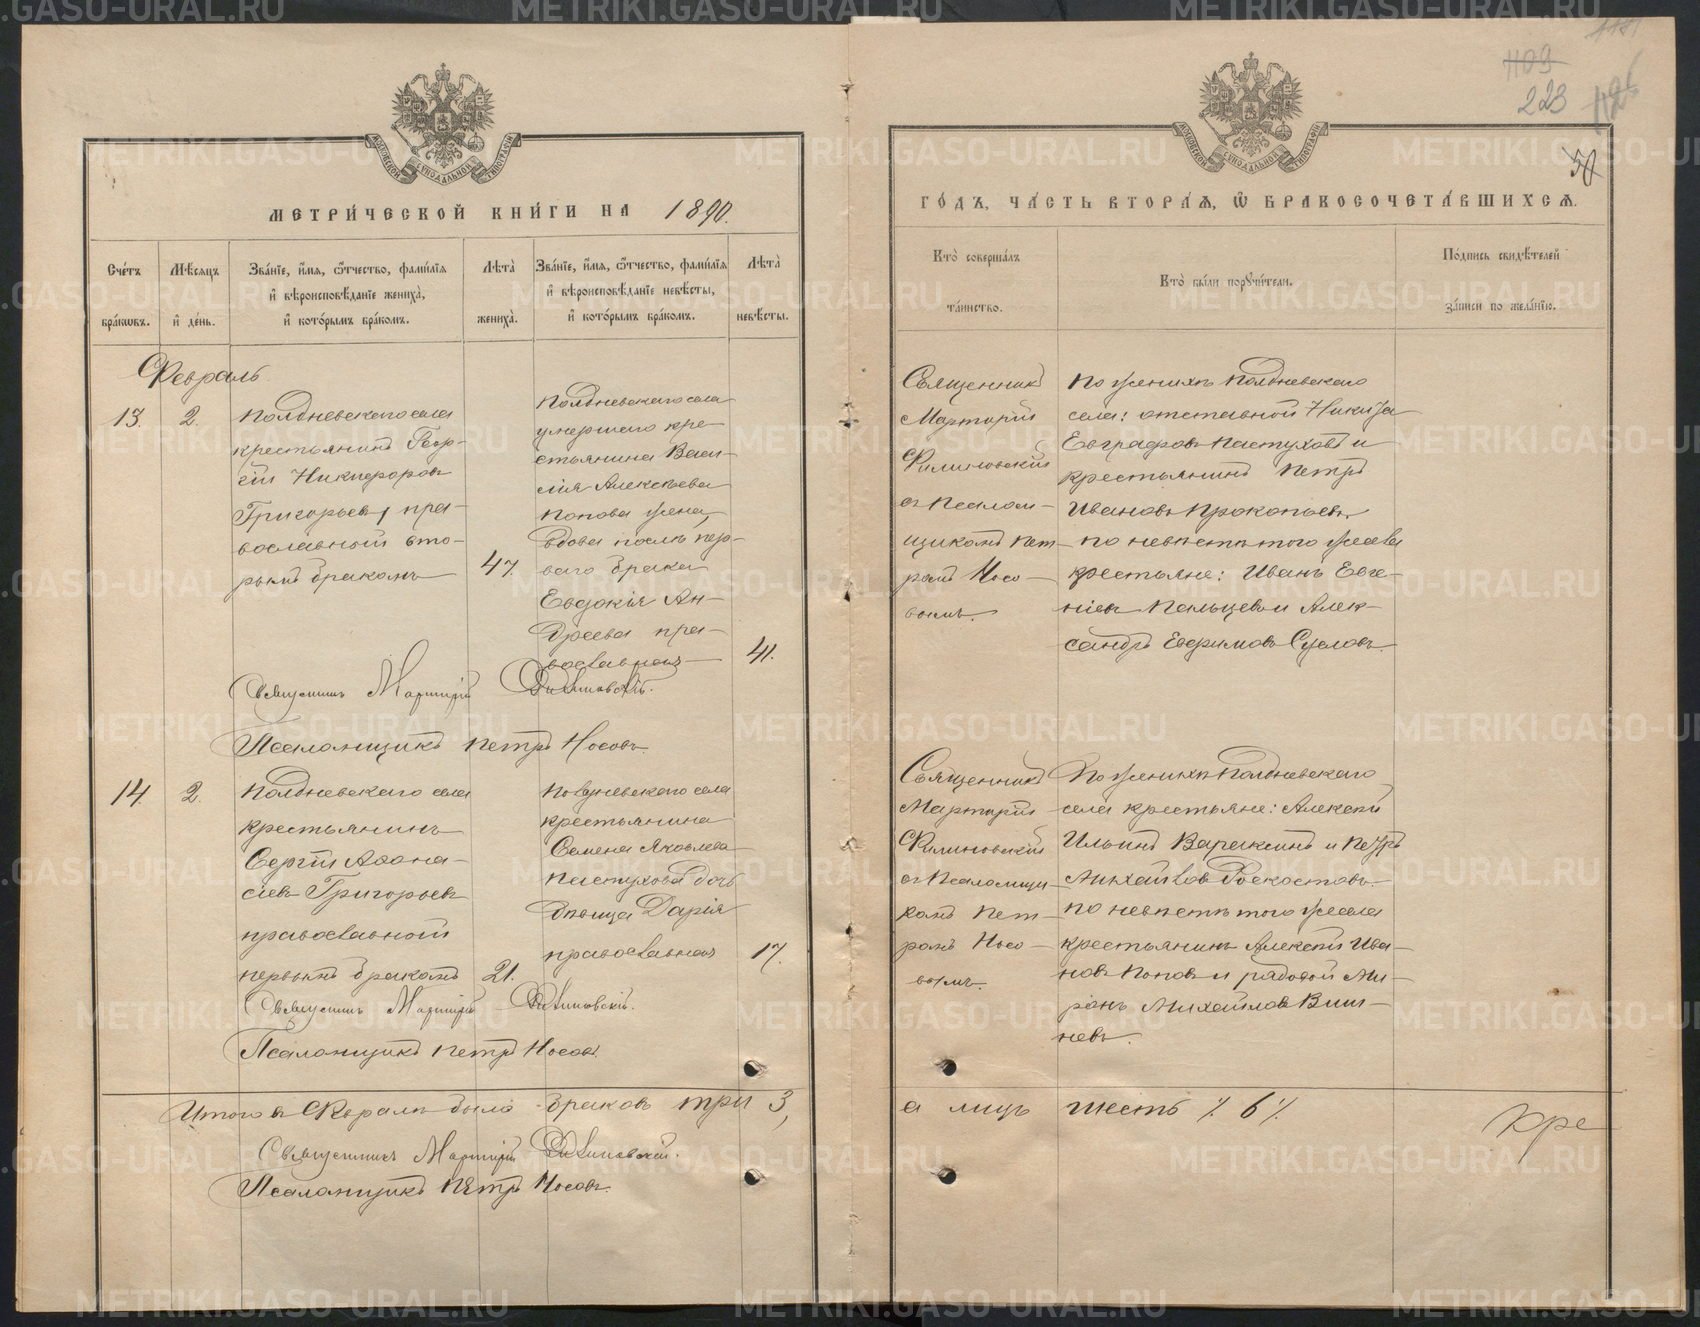 МЕТРИ́ЧЕСКОЙ КНИ́ГИ НА 1890.
Сче́тъ бра́ковъ.
Мѣ́сяцъ и҆ де́нь.
Зва́нїе, и҆́мя, ѻ҆́тчество, фами́лїя
и҆ вѣроисповѣ́данїе жениха̀,
и҆ кото́рымъ бра́комъ.
Лѣта̀ жениха̀.
Зва́нїе, и҆́мя, ѻ҆́тчество, фами́лїя
и҆ вѣроисповѣ́данїе невѣ́сты,
и҆ кото́рымъ бра́комъ.
Лѣта̀ невѣ́сты.
Февраль
13.
2.
Полдневскаго села
крестьянинъ Геор-
гій Никифоровъ
Григорьевъ, пра-
вославной вто-
рымъ бракомъ
47.
Полдневскаго села
умершаго кре-
стьянина Васи-
лія Алексѣева
Попова жена,
вдова послѣ пер-
ваго брака
Евдокія Ан-
дреева пра-
вославная
41.
Священникъ Мартирій Филиновскій.
Псаломщикъ Петръ Носовъ.
14
2.
Полдневскаго села
крестьянинъ
Сергій Аѳана-
сіевъ Григорьевъ
православной
первымъ бракомъ
21.
Полдневскаго села
крестьянина
Семена Яковлева
Пастухова дочь
дѣвица Дарія
православная
17.
Священникъ Мартирій Филиновскій.
Псаломщикъ Петръ Носовъ.
Итого въ Февралѣ было браковъ три 3,
Священникъ Мартирій Филиновскій.
Псаломщикъ Петръ Носовъ.
1109
223
50
ГО́ДЪ, ЧА́СТЬ ВТОРА́Я, Ѡ҆ БРАКОСОЧЕТА́ВШИХСЯ.
Кто̀ соверша́лъ
та́инство.
Кто̀ бы́ли порꙋчи́тели.
По́дпись свидѣ́телей
за́писи по жела́нїю.
Священникъ
Мартирій
Филиновскій
съ Псалом-
щикомъ Пет-
ромъ Носо-
вымъ.
По женихѣ Полдневскаго
села: отставной Никита
Евграфовъ Пастуховъ и
крестьянинъ Петръ
Ивановъ Прокопьевъ,
по невѣстѣ того же села
крестьяне: Иванъ Евге-
ніевъ Пальцевъ и Алек-
сандръ Ефримовъ Сусловъ.
Священникъ
Мартирій
Филиновскій
съ Псаломщи-
комъ Пет-
ромъ Носо-
вымъ.
По женихѣ Полдневскаго
села крестьяне: Алексѣй
Ильинъ Варaксинъ и Петръ
Михайловъ Роскостовъ.
по невѣстѣ того же села
крестьянинъ Алексѣй Ива-
новъ Поповъ и рядовой Ми-
ронъ Михайловъ Виш-
невъ.
а лицъ шесть ∕. 6 ∕.
METRIKI.GASO-URAL.RU